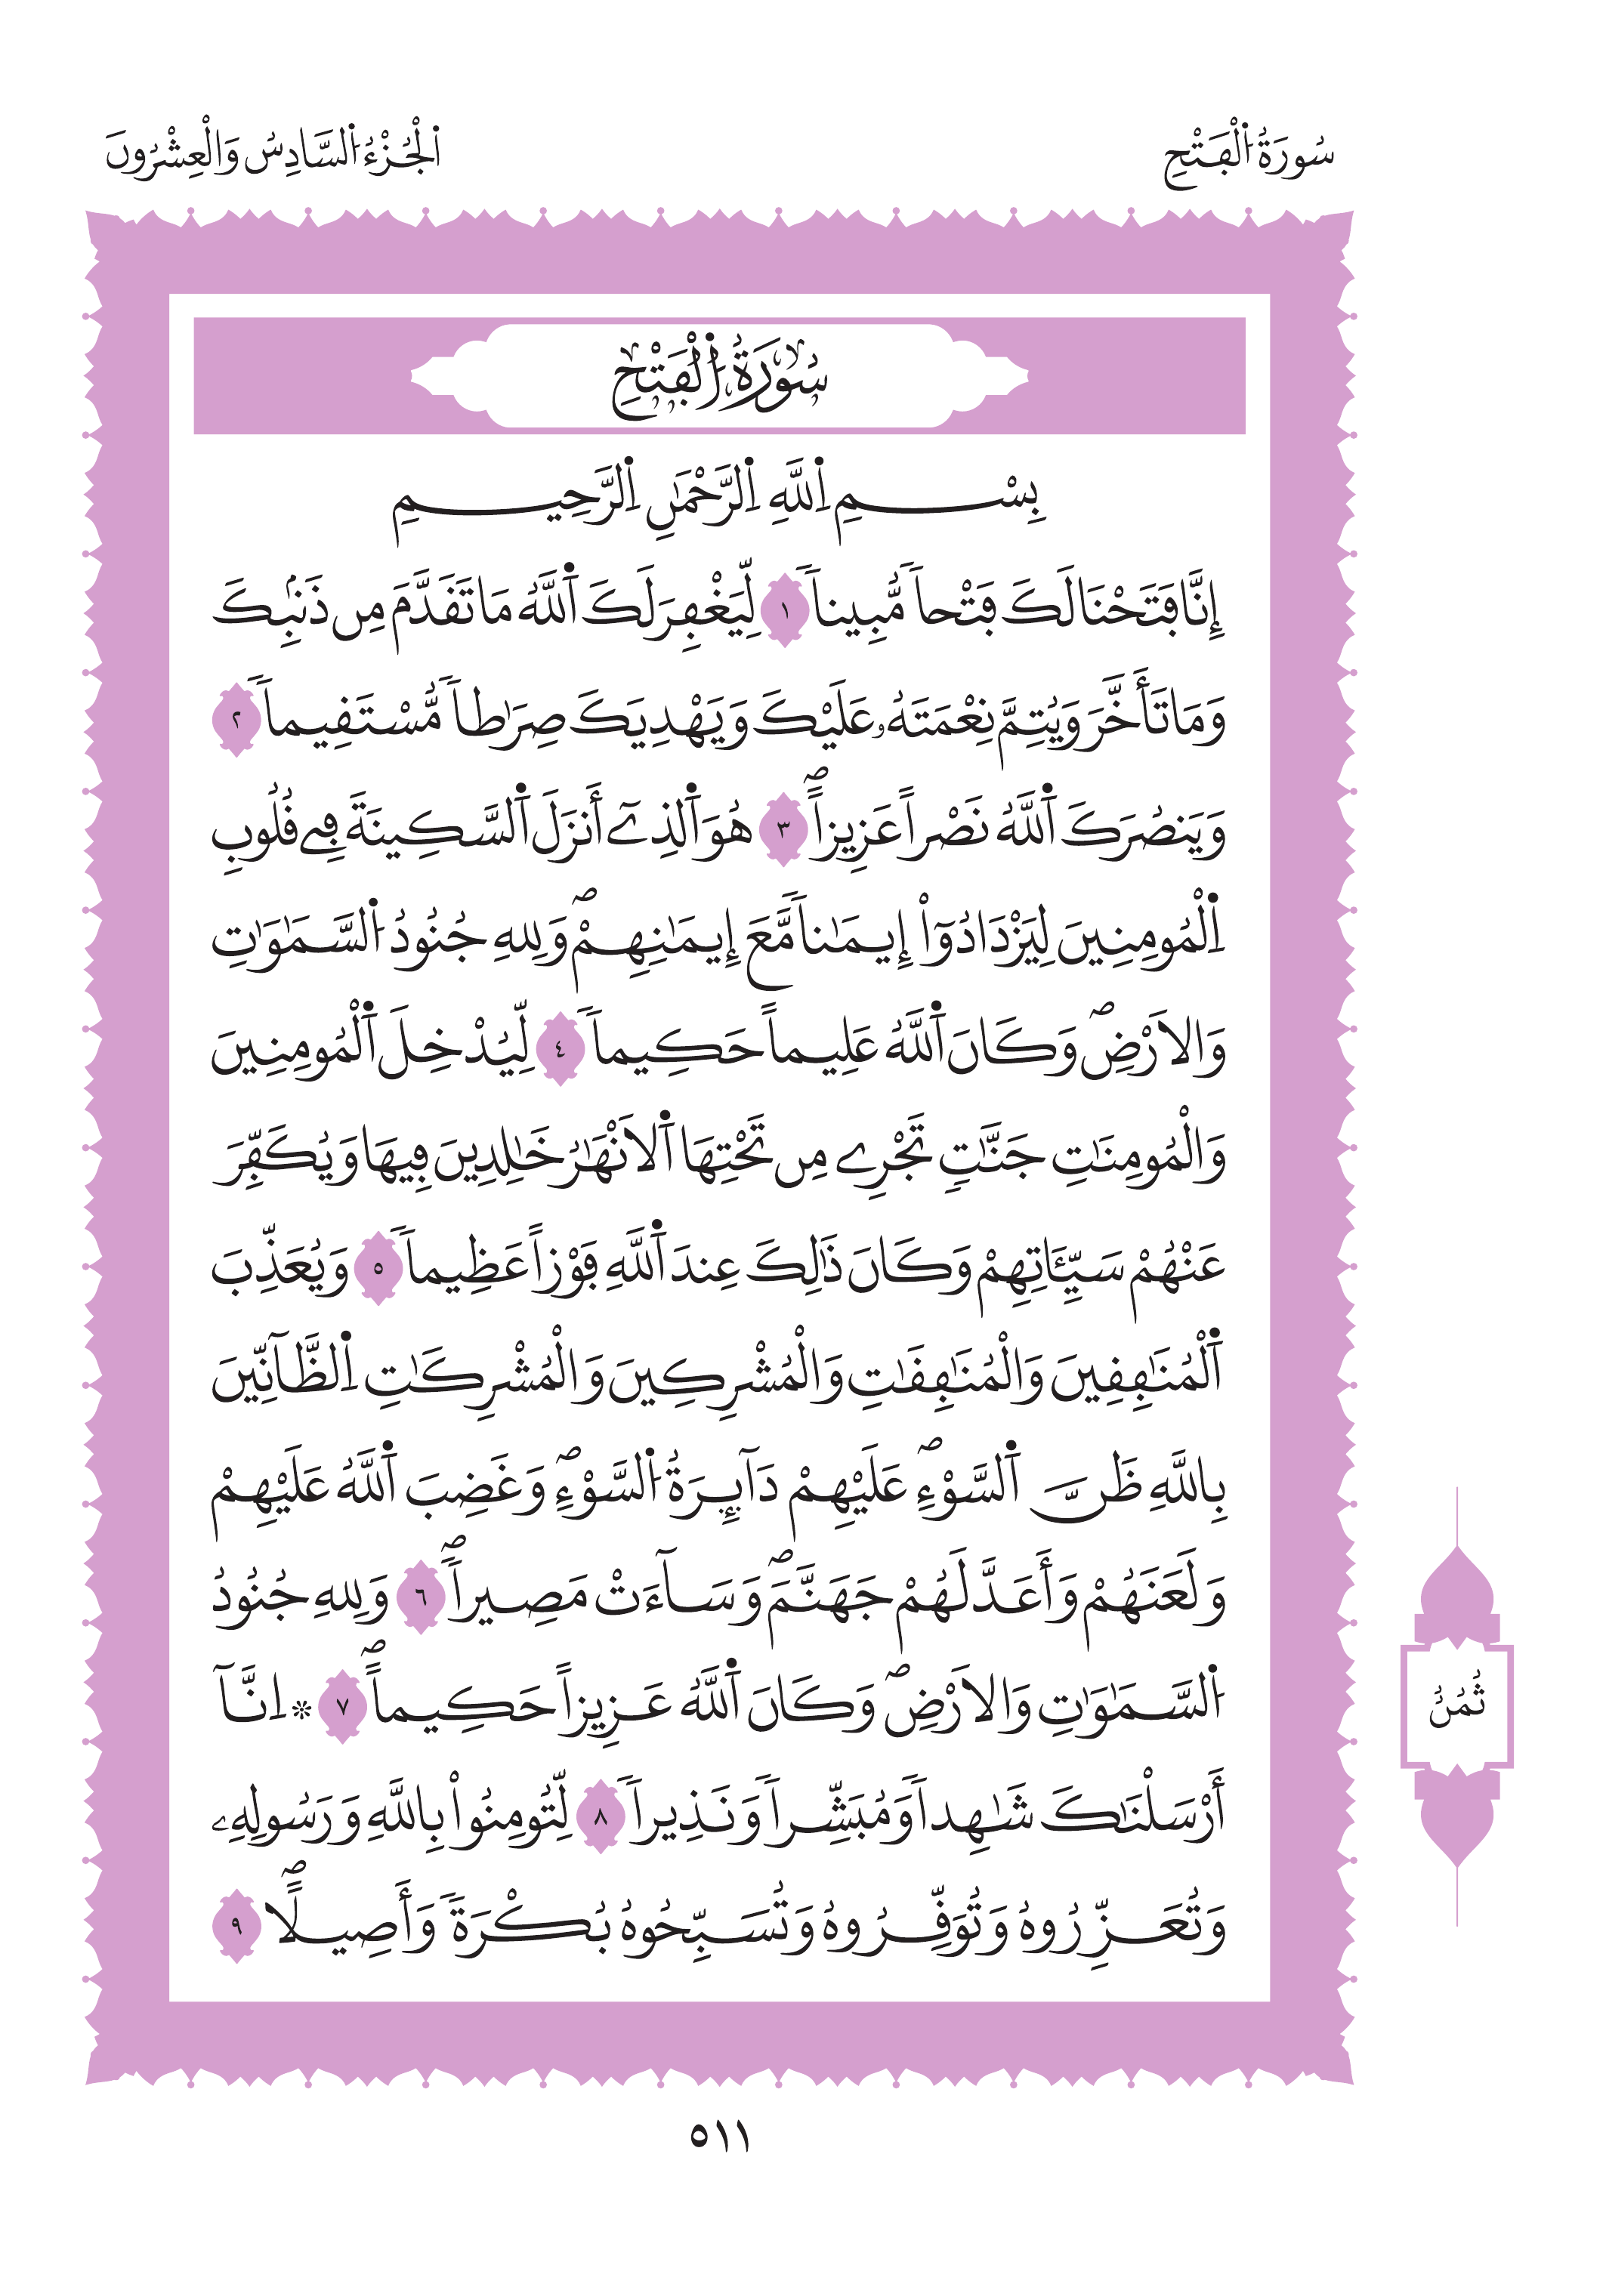 سُورَةُ اُ۬لْفَتْحِ
اَ۬لْجُزْءُ اُ۬لسَّادِسُ وَالْعِشْرُونَ
سُورَةُ اُ۬لْفَتْحِ
بِسْمِ اِ۬للَّهِ اِ۬لرَّحْمَٰنِ اِ۬لرَّحِيمِ
إِنَّا فَتَحْنَا لَكَ فَتْحاٗ مُّبِيناٗ ١ لِّيَغْفِرَ لَكَ اَ۬للَّهُ مَا تَقَدَّمَ مِن ذَنۢبِكَ
وَمَا تَأَخَّرَ وَيُتِمَّ نِعْمَتَهُۥ عَلَيْكَ وَيَهْدِيَكَ صِرَٰطاٗ مُّسْتَقِيماٗ ٢
وَيَنصُرَكَ اَ۬للَّهُ نَصْراً عَزِيزاًۖ ٣ هُوَ اَ۬لذِےٓ أَنزَلَ اَ۬لسَّكِينَةَ فِے قُلُوبِ
اِ۬لْمُومِنِينَ لِيَزْدَادُوٓاْ إِيمَٰناٗ مَّعَ إِيمَٰنِهِمْۖ وَلِلهِ جُنُودُ اُ۬لسَّمَٰوَٰتِ
وَالَارْضِۖ وَكَانَ اَ۬للَّهُ عَلِيماً حَكِيماٗ ٤ لِّيُدْخِلَ اَ۬لْمُومِنِينَ
وَالْمُومِنَٰتِ جَنَّٰتٖ تَجْرِے مِن تَحْتِهَا اَ۬لَانْهَٰرُ خَٰلِدِينَ فِيهَا وَيُكَفِّرَ
عَنْهُمْ سَيِّـَٔاتِهِمْ وَكَانَ ذَٰلِكَ عِندَ اَ۬للَّهِ فَوْزاً عَظِيماٗ ٥ وَيُعَذِّبَ
اَ۬لْمُنَٰفِقِينَ وَالْمُنَٰفِقَٰتِ وَالْمُشْرِكِينَ وَالْمُشْرِكَٰتِ اِ۬لظَّآنِّينَ
بِاللَّهِ ظَنَّ اَ۬لسَّوْءِۖ عَلَيْهِمْ دَآئِرَةُ اُ۬لسَّوْءِۖ وَغَضِبَ اَ۬للَّهُ عَلَيْهِمْ
وَلَعَنَهُمْ وَأَعَدَّ لَهُمْ جَهَنَّمَۖ وَسَآءَتْ مَصِيراٗۖ ٦ وَلِلهِ جُنُودُ
اُ۬لسَّمَٰوَٰتِ وَالَارْضِۖ وَكَانَ اَ۬للَّهُ عَزِيزاً حَكِيماًۖ ٧ * اِنَّآ
أَرْسَلْنَٰكَ شَٰهِداٗ وَمُبَشِّراٗ وَنَذِيراٗ ٨ لِّتُومِنُواْ بِاللَّهِ وَرَسُولِهِۦ
وَتُعَزِّرُوهُ وَتُوَقِّرُوهُ وَتُسَبِّحُوهُ بُكْرَةٗ وَأَصِيلاًۖ ٩
ثُمُنٌ
٥١١